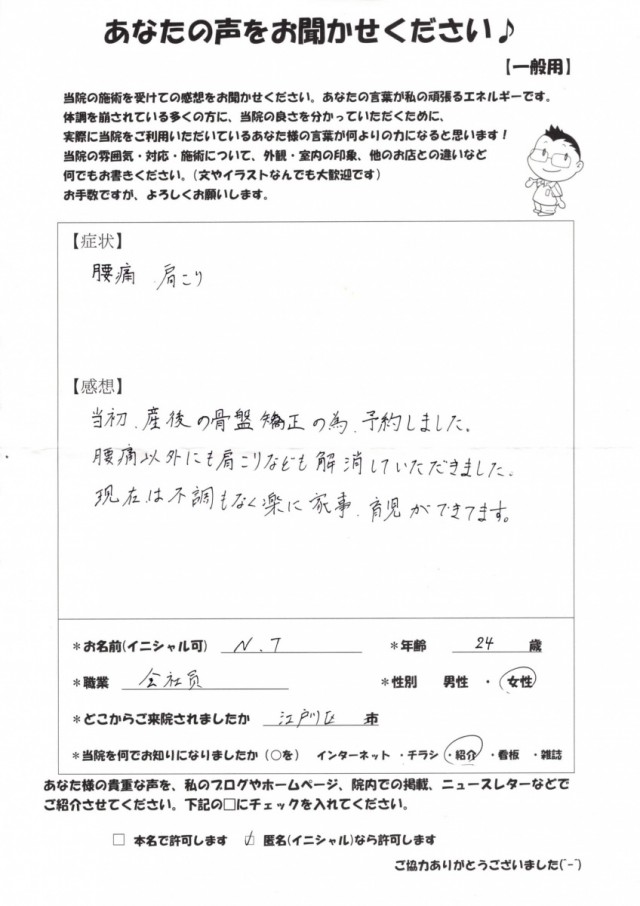 あなたの声をお聞かせください♪
【一般用】
当院の施術を受けての感想をお聞かせください。あなたの言葉が私の頑張るエネルギーです。
体調を崩されている多くの方に、当院の良さを分かっていただくために、
実際に当院をご利用いただいているあなた様の言葉が何よりの力になると思います!
当院の雰囲気・対応・施術について、外観・室内の印象、他のお店との違いなど
何でもお書きください。(文やイラストなんでも大歓迎です)
お手数ですが、よろしくお願いします。
【症状】
腰痛、肩こり
【感想】
当初、産後の骨盤矯正の為、予約しました。
腰痛以外にも肩こりなども解消していただきました。
現在は不調もなく楽に家事、育児ができてます。
*お名前(イニシャル可) N.T *年齢 24 歳
*職業 会社員 *性別 男性 ・ 女性
*どこからご来院されましたか 江戸川区 市
*当院を何でお知りになりましたか(○を) インターネット ・チラシ ・紹介 ・看板 ・雑誌
あなた様の貴重な声を、私のブログやホームページ、院内での掲載、ニュースレターなどで
ご紹介させてください。下記の□にチェックを入れてください。
□ 本名で許可します ☑ 匿名(イニシャル)なら許可します
ご協力ありがとうございました(^-^)